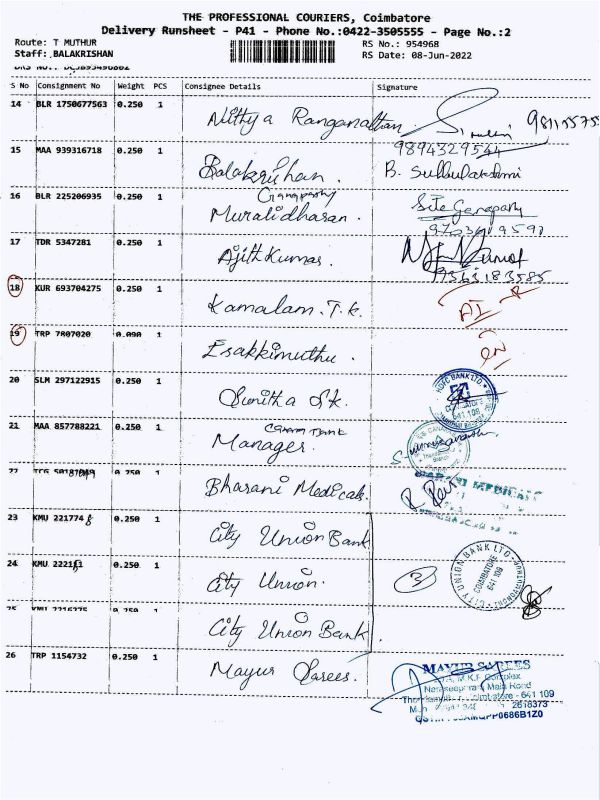 THE PROFESSIONAL COURIERS, Coimbatore
Delivery Runsheet - P41 - Phone No.:0422-3505555 - Page No.:2
Route: T MUTHUR RS No.: 954968
Staff: BALAKRISHAN RS Date: 08-Jun-2022
S No Consignment No Weight PCS Consignee Details Signature
14 BLR 1750677563 0.250 1 Nithya Ranganathan
15 MAA 939316718 0.250 1 Balakrishan. 9894329544
B. Subbulakshmi
16 BLR 225206935 0.250 1 Ganapathy
Muralidharan. Site Ganapathy
17 TDR 5347281 0.250 1 Ajith Kumar.
9363183585
18 KUR 693704275 0.250 1 Kamalam. T. K.
19 TRP 7807020 0.090 1 Esakkimuthu.
20 SLM 297122915 0.250 1 Sunitha SK.
641 109
21 MAA 857788221 0.250 1
Manager.
0.250 1 Bharani Medicals.
23 KMU 221774 0.250 1 City Union Bank
24 KMU 0.250 1 City Union. 3
CITY UNION BANK LTD
COIMBATORE
641 109
25 0.250 1 City Union Bank.
26 TRP 1154732 0.250 1 Mayur Sarees.
MAYUR SAREES
M.K.P. Complex
Naraseepuram Main Road
Coimbatore - 641 109
2618373